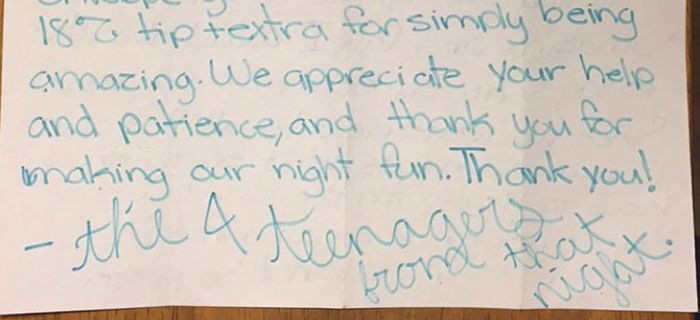 18% tip + extra for simply being
amazing. We appreciate your help
and patience, and thank you for
making our night fun. Thank you!
- the 4 teenagers
from that
night.